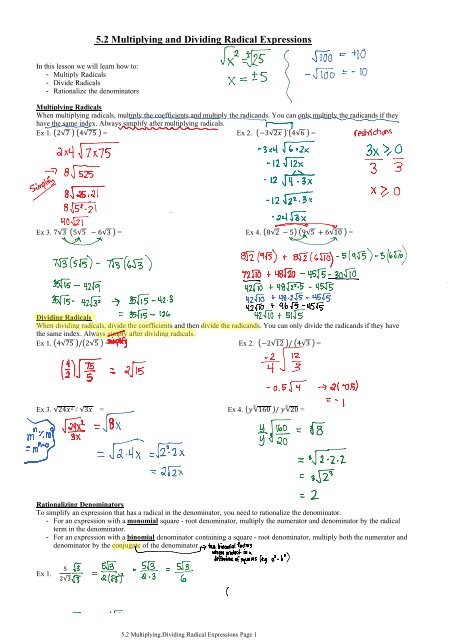 5.2 Multiplying and Dividing Radical Expressions
√x² = ±√25
x = ±5
√100 = +10
-√100 = -10
In this lesson we will learn how to:
- Multiply Radicals
- Divide Radicals
- Rationalize the denominators
Multiplying Radicals
When multiplying radicals, multiply the coefficients and multiply the radicands. You can only multiply the radicands if they
have the same index. Always simplify after multiplying radicals.
Ex 1. (2√7)(4√75) =
2x4 √7x75
Simplify → 8√525
8√25·21
8√5²·21
40√21
Ex 2. (−3√2x)(4√6) =
-3x4 √6·2x
-12 √12x
-12 √4·3x
-12 √2²·3x
-24√3x
restrictions
3x ≥ 0
3 3
x ≥ 0
Ex 3. 7√3 (5√5 − 6√3) =
7√3(5√5) - 7√3(6√3)
35√15 - 42√9
35√15 - 42√3² → 35√15 - 42·3
= 35√15 - 126
Ex 4. (8√2 − 5)(9√5 + 6√10) =
8√2 (9√5) + 8√2 (6√10) - 5(9√5) - 5(6√10)
72√10 + 48√20 - 45√5 - 30√10
42√10 + 48√2²·5 - 45√5
42√10 + 48·2√5 - 45√5
42√10 + 96√5 - 45√5
42√10 + 51√5
Dividing Radicals
When dividing radicals, divide the coefficients and then divide the radicands. You can only divide the radicands if they have
the same index. Always simplify after dividing radicals.
Ex 1. (4√75)/(2√5)
(4/2) √75/5 = 2√15
Ex 2. (−2√12)/(4√3) =
-2/4 √12/3
-0.5√4 → 2(-0.5)
= -1
Ex 3. √24x² / √3x =
mⁿ / mᵒ
= mⁿ⁻ᵒ
√24x²/3x = √8x
= √2·4x = √2²·2x
= 2√2x
Ex 4. (y∛160)/ y∛20 =
y/y ∛160/20 = ∛8
= ∛2·2·2
= ∛2³
= 2
Rationalizing Denominators
To simplify an expression that has a radical in the denominator, you need to rationalize the denominator.
- For an expression with a monomial square - root denominator, multiply the numerator and denominator by the radical
term in the denominator.
- For an expression with a binomial denominator containing a square - root denominator, multiply both the numerator and
denominator by the conjugate of the denominator. → the binomial factors
whose product is a
difference of squares (eg a²-b²)
Ex 1. 5/2√3 √3/√3 = 5√3/2(√3)² = 5√3/2·3 = 5√3/6
5.2 Multiplying.Dividing Radical Expressions Page 1